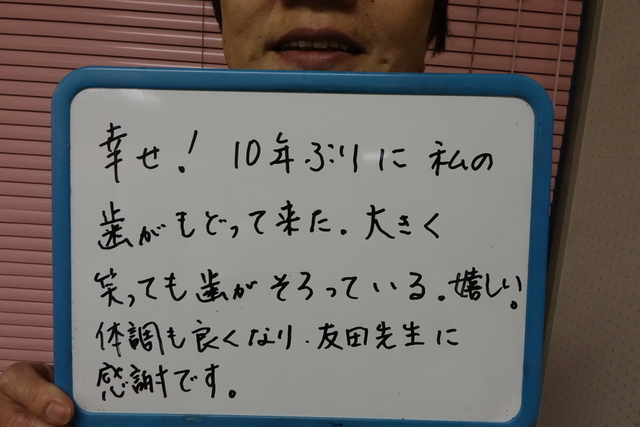 幸せ！ 10年ぶりに 私の
歯がもどって来た。大きく
笑っても歯がそろっている。嬉しい。
体調も良くなり、友田先生に
感謝です。